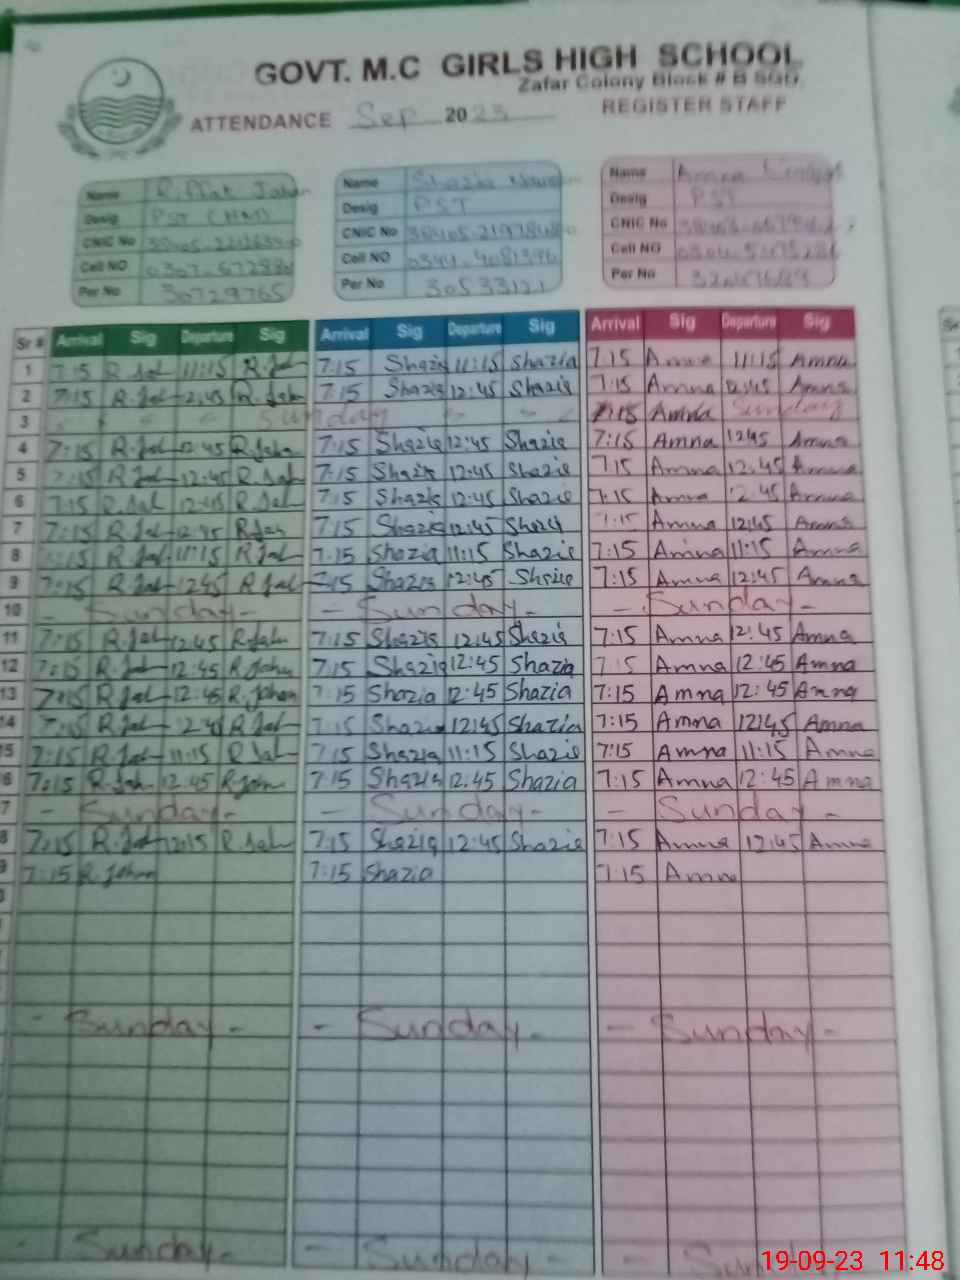 GOVT. M.C GIRLS HIGH SCHOOL
Zafar Colony Block # B SGD.
ATTENDANCE Sep 2023 REGISTER STAFF
Name Name Shazia Name Amna
Desig PST (HM) Desig PST Desig PST
CNIC No CNIC No CNIC No
Cell NO Cell NO Cell NO
Per No 30729765 Per No 30533121 Per No
Sr # Arrival Sig Departure Sig Arrival Sig Departure Sig Arrival Sig Departure Sig
1 7:15 R.Jah 11:15 R.Jah 7:15 Shazia 11:15 Shazia 7:15 Amna 11:15 Amna
2 7:15 R.Jah 12:45 R.Jahan 7:15 Shazia 12:45 Shazia 7:15 Amna 12:45 Amna
3 Sunday 7:15 Amna Sunday
4 7:15 R.Jah 12:45 R.Jahan 7:15 Shazia 12:45 Shazia 7:15 Amna 12:45 Amna
5 7:15 R.Jah 12:45 R.Jah 7:15 Shazia 12:45 Shazia 7:15 Amna 12:45 Amna
6 7:15 R.Jah 12:45 R.Jah 7:15 Shazia 12:45 Shazia 7:15 Amna 12:45 Amna
7 7:15 R.Jah 12:45 R.Jah 7:15 Shazia 12:45 Shazia 7:15 Amna 12:45 Amna
8 7:15 R.Jah 11:15 R.Jah 7:15 Shazia 11:15 Shazia 7:15 Amna 11:15 Amna
9 7:15 R.Jah 12:45 R.Jah 7:15 Shazia 12:45 Shazia 7:15 Amna 12:45 Amna
10 - Sunday - - Sunday - - Sunday -
11 7:15 R.Jah 12:45 R.Jah 7:15 Shazia 12:45 Shazia 7:15 Amna 12:45 Amna
12 7:15 R.Jah 12:45 R.Jahan 7:15 Shazia 12:45 Shazia 7:15 Amna 12:45 Amna
13 7:15 R.Jah 12:45 R.Jahan 7:15 Shazia 12:45 Shazia 7:15 Amna 12:45 Amna
14 7:15 R.Jah 12:45 R.Jah 7:15 Shazia 12:45 Shazia 7:15 Amna 12:45 Amna
5 7:15 R.Jah 11:15 R Jah 7:15 Shazia 11:15 Shazia 7:15 Amna 11:15 Amna
6 7:15 R.Jah 12:45 R.Jahan 7:15 Shazia 12:45 Shazia 7:15 Amna 12:45 Amna
7 - Sunday - - Sunday - - Sunday -
8 7:15 R.Jah 12:15 R.Jah 7:15 Shazia 12:45 Shazia 7:15 Amna 12:45 Amna
9 7:15 R.Jahan 7:15 Shazia 7:15 Amna
- Sunday - - Sunday - - Sunday -
- Sunday - - Sunday -
19-09-23 11:48